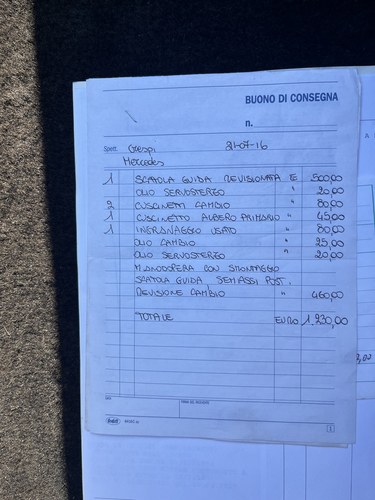 BUONO DI CONSEGNA
n.
Spett. Crespi 21-07-16
Mercedes
1 SCATOLA GUIDA REVISIONATA E 500,00
OLIO SERVOSTERZO " 20,00
2 CUSCINETTI CAMBIO " 80,00
1 CUSCINETTO ALBERO PRIMARIO " 45,00
1 INGRANAGGIO USATO " 80,00
OLIO CAMBIO " 25,00
OLIO SERVOSTERZO " 20,00
MANODOPERA CON SMONTAGGIO
SCATOLA GUIDA, SEMIASSI POST.
REVISIONE CAMBIO " 460,00
TOTALE EURO 1.230,00